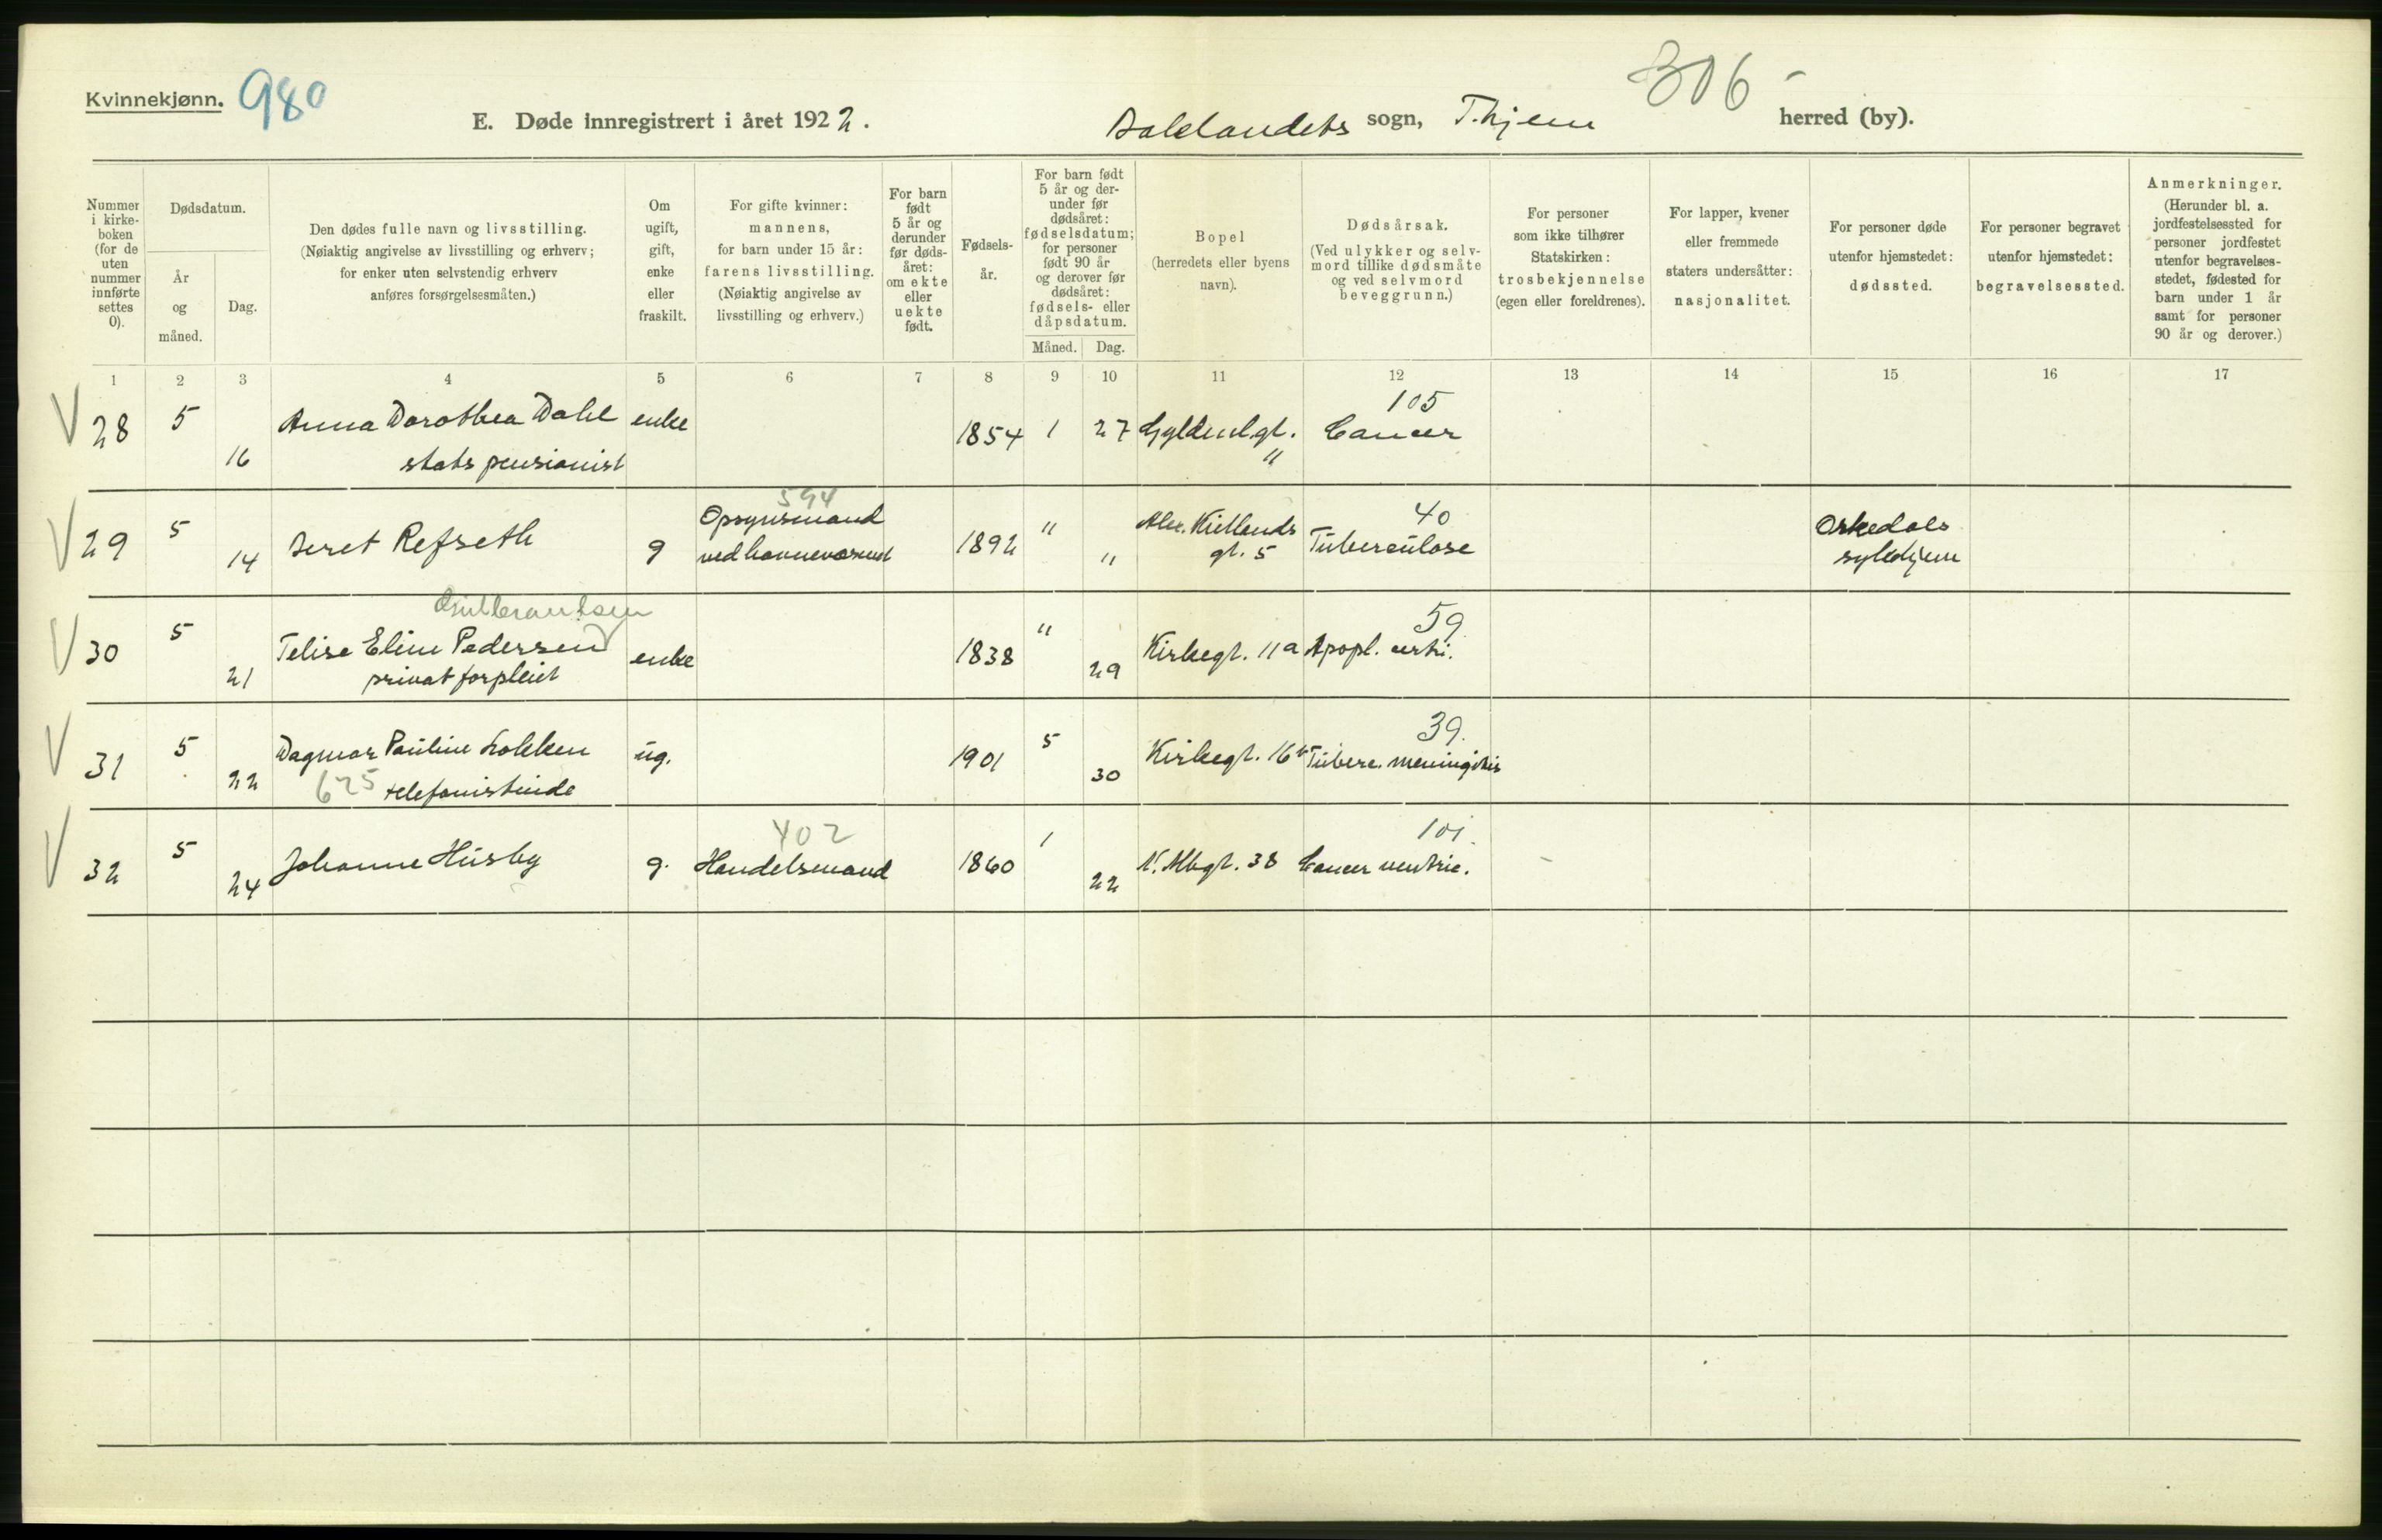 Kvinnekjønn. 980
306
E. Døde innregistrert i året 1922. Baklandets sogn, T.hjem herred (by).
Nummer i kirke- boken (for de uten nummer innførte settes 0).
Dødsdatum.
År og måned.
Dag.
Den dødes fulle navn og livsstilling.
(Nøiaktig angivelse av livsstilling og erhverv;
for enker uten selvstendig erhverv
anføres forsørgelsesmåten.)
Om ugift, gift, enke eller fraskilt.
For gifte kvinner:
mannens,
for barn under 15 år:
farens livsstilling.
(Nøiaktig angivelse av
livsstilling og erhverv.)
For barn født 5 år og derunder før døds- året: om ekte eller uekte født.
Fødsels- år.
For barn født 5 år og der- under før dødsåret: fødselsdatum; for personer født 90 år og derover før dødsåret: fødsels- eller dåpsdatum.
Måned. Dag.
Bopel
(herredets eller byens
navn).
Dødsårsak.
(Ved ulykker og selv-
mord tillike dødsmåte
og ved selvmord
beveggrunn.)
For personer
som ikke tilhører
Statskirken:
trosbekjennelse
(egen eller foreldrenes).
For lapper, kvener
eller fremmede
staters undersåtter:
nasjonalitet.
For personer døde
utenfor hjemstedet:
dødssted.
For personer begravet
utenfor hjemstedet:
begravelsessted.
Anmerkninger.
(Herunder bl. a.
jordfestelsessted for
personer jordfestet
utenfor begravelses-
stedet, fødested for
barn under 1 år
samt for personer
90 år og derover.)
1 2 3 4 5 6 7 8 9 10 11 12 13 14 15 16 17
V 28 5 16 Anna Dorothea Dahl enke 1854 1 27 Gyldenl.gt. 105 Cancer
statspensionist "
V 29 5 14 Beret Refseth g 594 Opsynsmand 1892 " " Alex. Kiellands 40 Tuberculose Orkedals
ved havnevæsenet gt. 5 sykehjem
V 30 5 21 Telise Eline Pedersen enke 1838 " 29 Kirkegt. 11a 59 Apopl. cerebri.
privat forpleiet
V 31 5 22 Dagmar Pauline Løkken ug. 1901 5 30 Kirkegt. 16b 39. Tuberc. meningitis
625 telefonistinde
V 32 5 24 Johanne Húsby g. 402 Handelsmand 1860 1 22 N. Mbgt. 38 101. Cancer ventric.